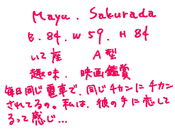 Mayu. Sakurada
B.84.W59.H84
いて座 A型
趣味. 映画鑑賞
毎日同じ電車で、同じチカンにチカン
されてるの。私は、彼の手に恋して
るって感じ…